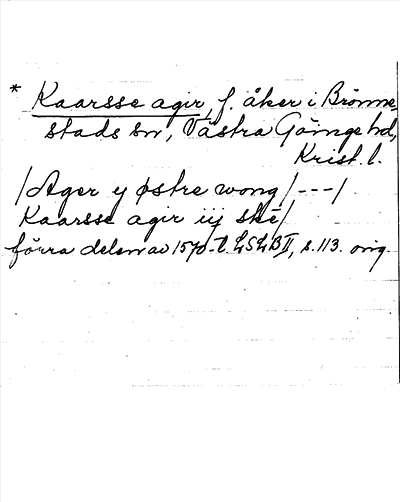 * Kaarsse agir, f. åker i Brönne-
stads sn, Västra Göinge hd,
Krist. l.
/Ager y østre wong/---/
Kaarsse agir iij ske/
förra delen av 1570-t. LSLB II, s. 113. orig.